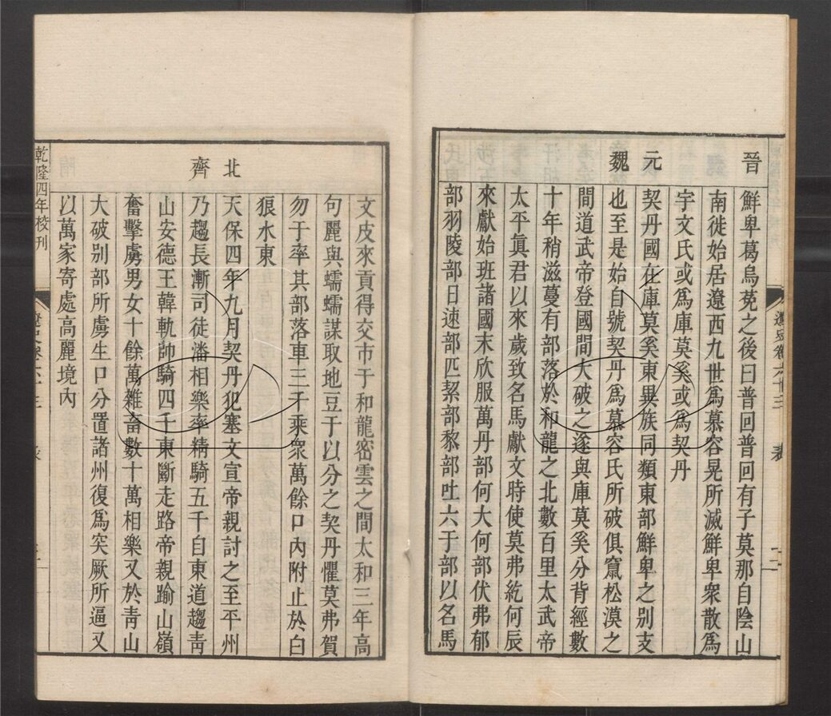 晉
鮮卑葛烏菟之後曰普回普回有子莫那自陰山
南徙始居遼西九世爲慕容晃所滅鮮卑衆散爲
宇文氏或爲庫莫奚或爲契丹
元魏
契丹國在庫莫奚東異族同類東部鮮卑之别支
也至是始自號契丹爲慕容氏所破俱竄松漠之
間道武帝登國間大破之遂與庫莫奚分背經數
十年稍滋蔓有部落於和龍之北數百里太武帝
太平眞君以來歲致名馬獻文時使莫弗紇何辰
來獻始班諸國末欣服萬丹部何大何部伏弗郁
部羽陵部日連部匹絜部黎部吐六于部以名馬
文皮來貢得交市于和龍密雲之間太和三年高
句麗與蠕蠕謀取地豆于以分之契丹懼莫弗賀
勿于率其部落車三千乘衆萬餘口內附止於白
狼水東
北齊
天保四年九月契丹犯塞文宣帝親討之至平州
乃趨長漸司徒潘相樂率精騎五千自東道趨靑
山安德王韓軌帥騎四千東斷走路帝親踰山嶺
奮擊虜男女十餘萬雜畜數十萬相樂又於靑山
大破别部所虜生口分置諸州復爲突厥所逼又
以萬家寄處高麗境內
乾隆四年校刊